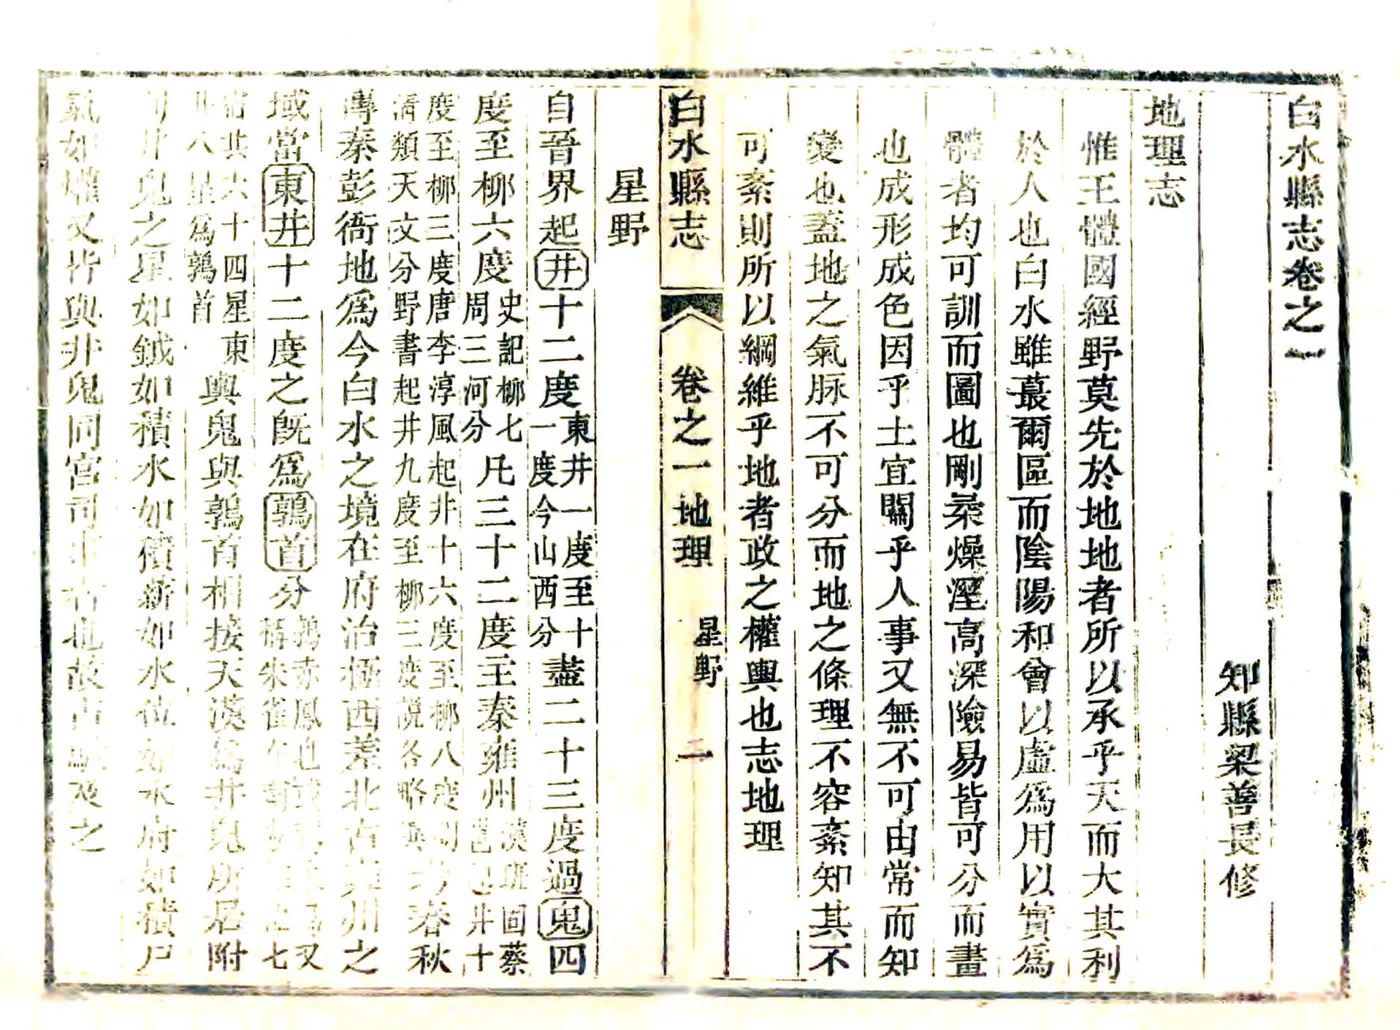 白水縣志卷之一
知縣梁善長修
地理志
惟王體國經野莫先於地地者所以承乎天而大其利
於人也白水雖蕞爾區而陰陽和會以虛為用以實為
體者均可訓而圖也剛柔燥溼高深險易皆可分而畫
也成形成色因乎土宜關乎人事又無不可由常而知
變也蓋地之氣脉不可分而地之條理不容紊知其不
可紊則所以綱維乎地者政之權輿也志地理
白水縣志 卷之一地理 星野 一
星野
自晉界起井十二度東井一度至十一度今山西分盡二十三度過鬼四
度至柳六度史記柳七周三河分凡三十二度主秦雍州漢班固蔡邕起井十
度至柳三度唐李淳風起井十六度至柳八度
清類天文分野書起井九度至柳三度說各略 春秋
傳秦彭衙地為今白水之境在府治極西差北古雍州之
域當東井十二度之旣為鶉首分鶉赤鳳也 又
稱朱雀 七
宿共六十四星東
井八星為鶉首輿鬼與鶉首相接天漢為井鬼所居附
井鬼之星如鉞如積水如積薪如水位如水府如積尸
氣如爟又皆與井鬼同宮 北故占 及之